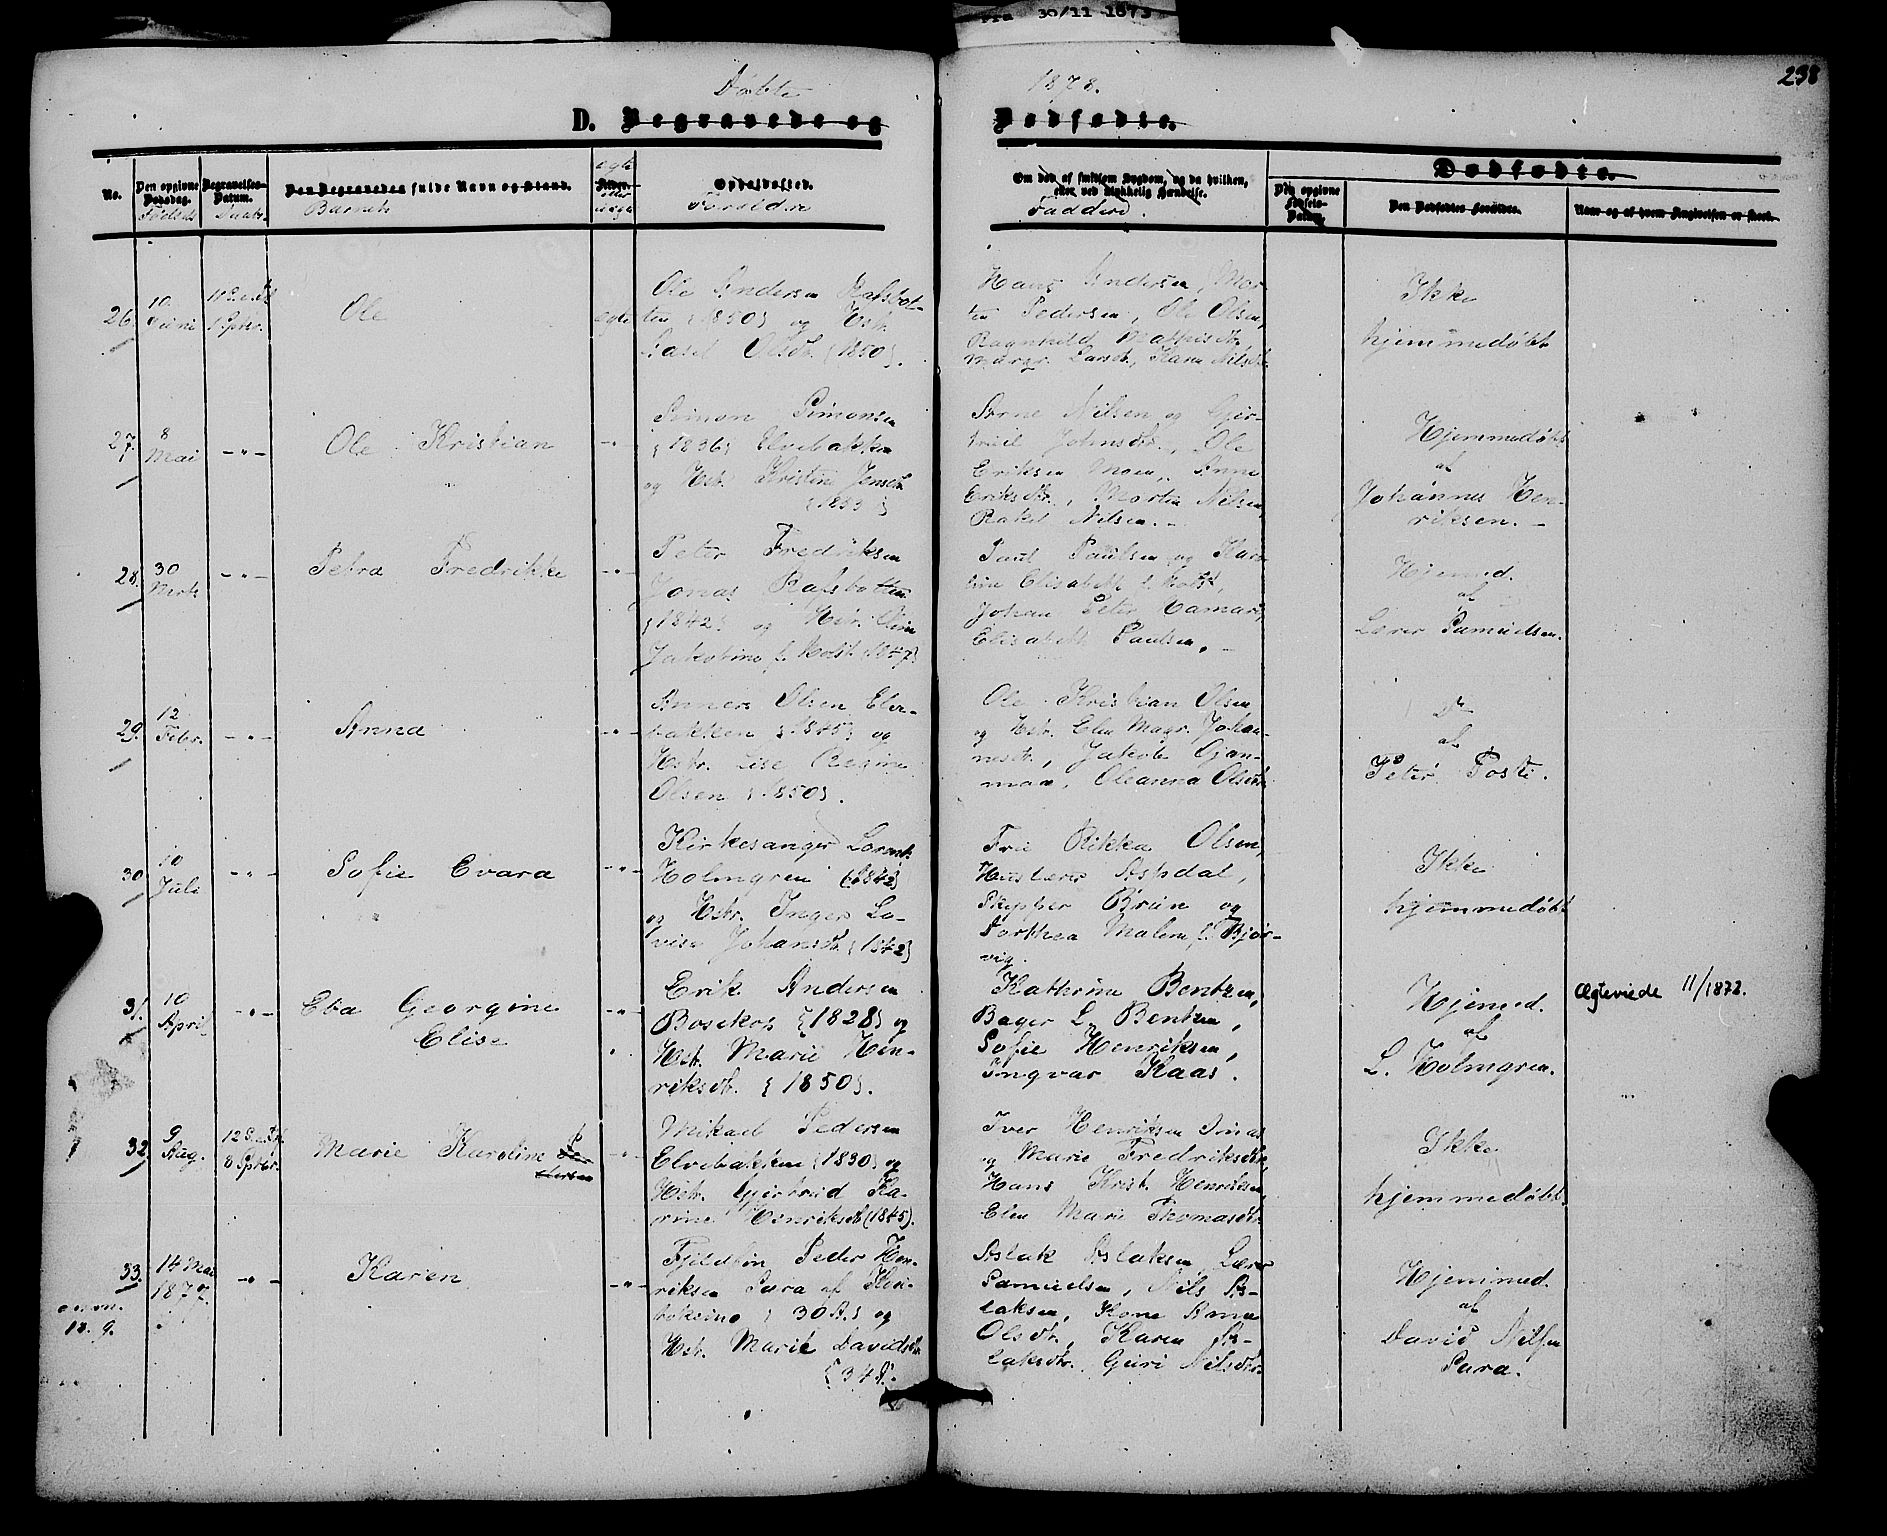 Fra 30/11 1873
238
Døbte 1878.
D. Begravede og Dødfødte.
No. Den opgivne Dødsdag. Begravelses-Datum. Den Begravedes fulde Navn og Stand. Alder. Opholdssted.
Fødsels Daabs Barnets ægte eller uægte Forældre
Om død af smitsom Sygdom, og da hvilken, eller ved ulykkelig Hændelse. Dødfødte.
Faddere.
Den opgivne Fødsels-Datum. Den Dødfødtes Forældre. Naar og af hvem Angivelsen er skeet.
26. 10 Juni 1 Sptbr. Ole ægte
Ole Andersen Rafsbot-
ten {1850} og Hstr.
Sasel Olsdtr. {1850}.
Hans Andersen, Mor-
ten Pedersen, Ole Olsen,
Ragnhild Mathisdtr.
Margr. Larsdtr., Karen Nilsdtr.
Ikke
hjemmedøbt
27. 8 Mai -"- Ole Kristian -"-
Simon Simonsen
{1836} Elvebakken
og Hstr. Kristine Jensdtr.
{1853}
Arne Nilsen og Gjer-
trud Johnsdtr., Ole
Eriksen Moen, Anne
Eriksdtr., Morten Nilsen,
Rakel Nilsen. -
Hjemmedøbt
af
Johannes Hen-
riksen. -
28. 30 Marts -"- Petra Fredrikke -"-
Peter Fredriksen
Jonas Rafsbotten
{1842} og Hstr. Eline
Jakobine f. Holst {1847}
Paul Paulsen og Karo-
line Elisabeth f. Holst,
Johan Peter Hamari,
Elisabeth Paulsen, -
Hjemmed.
af
Lærer Samuelsen.
29. 12 Febr. -"- Anna -"-
Anders Olsen Elve-
bakken {1845} og
Hstr. Lise Regine
Olsen {1850}.
Ole Kristian Olsen
og Hstr. Elen Magr. Johan-
nesdtr., Jakob Gjan-
man, Oleanna Olsdtr.
Do
af
Peter Posti.
30. 10 Juli -"- Sofie Evara -"-
Kirkesanger Lorents
Holmgren {1842}
og Hstr. Inger Lo-
vise Johansdtr. {1842}
Frú Rikka Olsen,
Huuslærer Aspdal,
Skipper Brun og
Dorthea Malene f. Bjør-
vig.
Ikke
hjemmedøbt
31. 10 April -"- Eva Georgine
Elise -"-
Erik Andersen
Bosekop {1828} og
Hstr. Marie Hen-
riksdtr. {1850}.
Kathrine Bentzen,
Bager L. Bentzen,
Sofie Henriksen,
Ingvar Kaas.
Hjemmed.
af
L. Holmgren.
Ægteviede 11/1872.
32. 9 Aug. 8 Sptbr. Marie Karoline -"-
Mikael Pedersen
Elvebakken {1830} og
Hstr. Gjertrud Ka-
rine Henriksdtr. (1845).
Iver Henriksen Jonas
og Marie Fredriksdtr.,
Hans Krist. Henriksen,
Elen Marie Thomasdtr.
Ikke
hjemmedøbt.
33. 14 Mai 187 -"- Karen -"-
18. 9.
Fjeldfin Peder Hen-
riksen Sara af Kau-
tokeino {30 A.} og
Hstr. Marit Davidsdtr.
{34 A.}.
Aslak Aslaksen, Lærer
Samuelsen, Nils As-
laksen, Kone Anne
Olsdtr., Karen As-
laksdtr. Guri Nilsdtr.
Hjemmed.
af
David Nilsen
Sara.